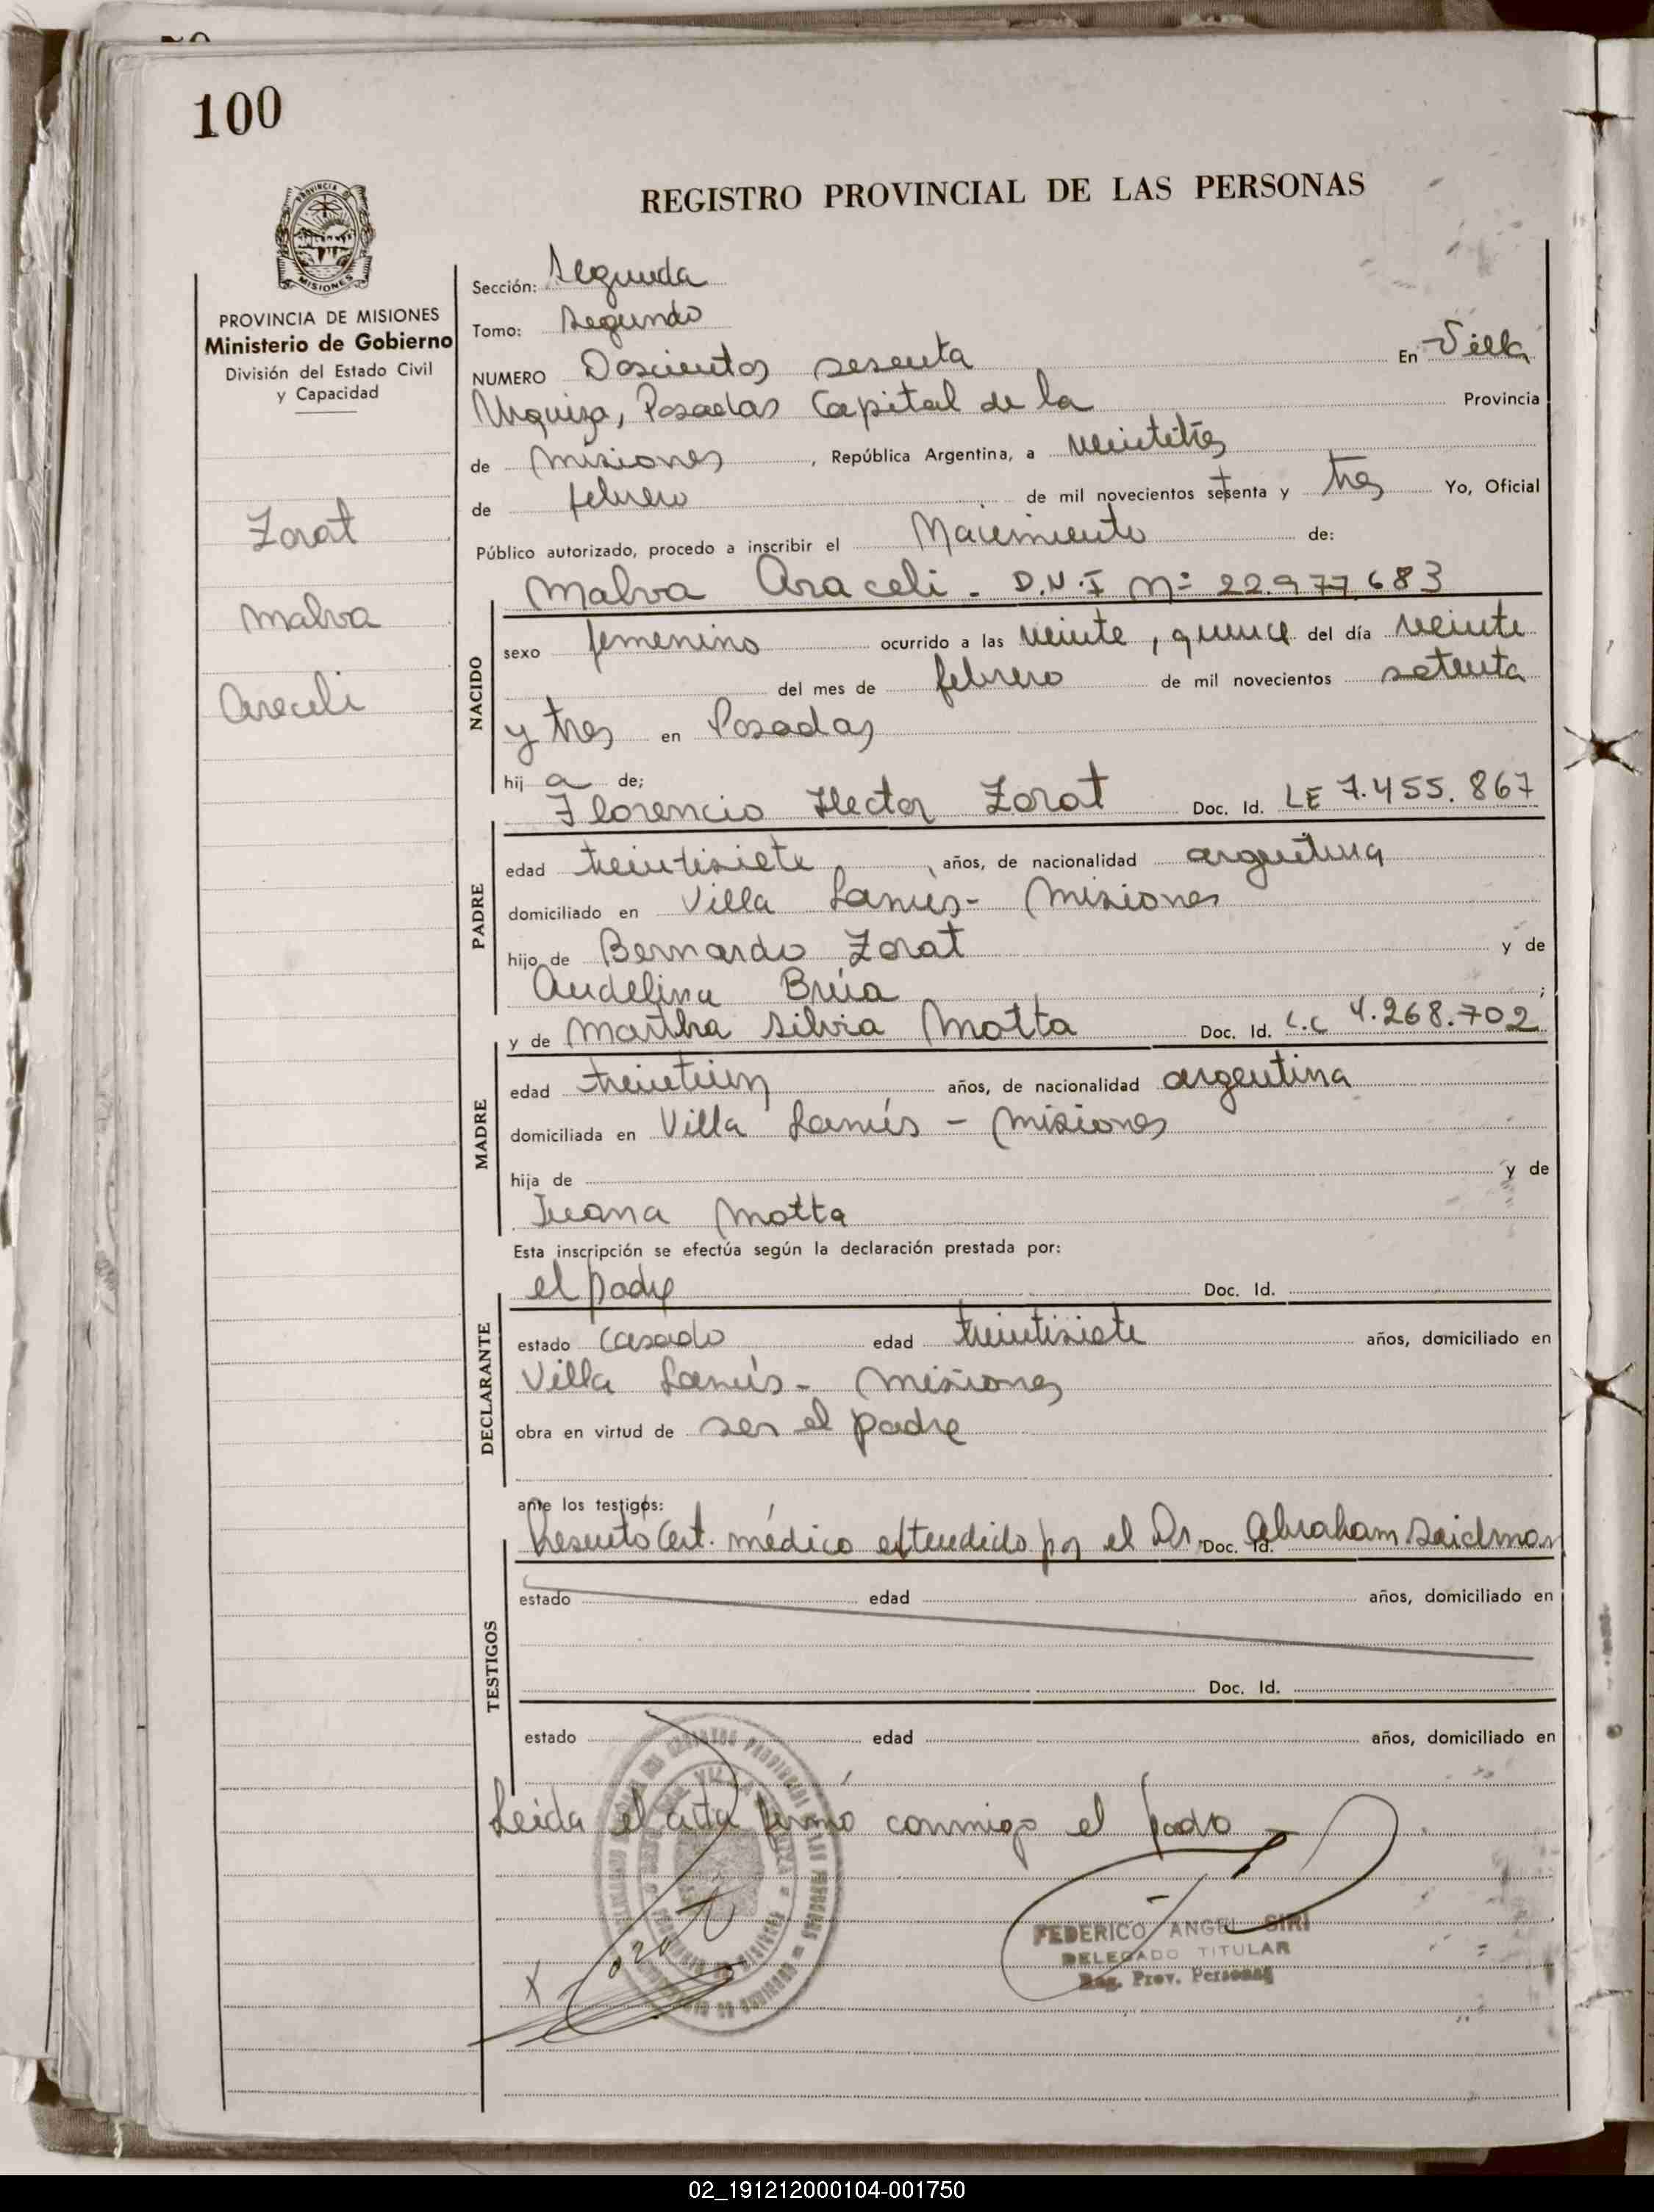 100
REGISTRO PROVINCIAL DE LAS PERSONAS
PROVINCIA DE MISIONES
Ministerio de Gobierno
División del Estado Civil
y Capacidad
Zorat
Malva
Araceli
Sección: Segunda
Tomo: Segundo
NUMERO Doscientos sesenta En Villa
Urquiza, Posadas Capital de la Provincia
de Misiones, República Argentina, a veintitrés
de febrero de mil novecientos setenta y tres Yo, Oficial
Público autorizado, procedo a inscribir el Nacimiento de:
Malva Araceli. D.N.I Nº 22.977.683
NACIDO
sexo femenino ocurrido a las veinte, quince del día veinte
del mes de febrero de mil novecientos setenta
y tres en Posadas
hij a de;
Florencio Hector Zorat Doc. Id. LE 7.455.867
PADRE
edad treintisiete, años, de nacionalidad argentina
domiciliado en Villa Lanús - Misiones
hijo de Bernardo Zorat y de
Audelina Brúa;
y de Martha Silvia Motta Doc. Id. L.C 4.268.702
MADRE
edad treintiún años, de nacionalidad argentina
domiciliada en Villa Lanús - Misiones
hija de y de
Juana Motta
Esta inscripción se efectúa según la declaración prestada por:
el padre Doc. Id.
DECLARANTE
estado casado edad treintisiete años, domiciliado en
Villa Lanús - Misiones
obra en virtud de ser el padre
ante los testigos:
Presento Cert. médico extendido por el Dr. Doc. Id. Abraham Saidman
TESTIGOS
estado edad años, domiciliado en
Doc. Id.
estado edad años, domiciliado en
Leída el acta firmó conmigo el padre
FEDERICO ANGEL SIRI
DELEGADO TITULAR
Reg. Prov. Personas
02_191212000104-001750